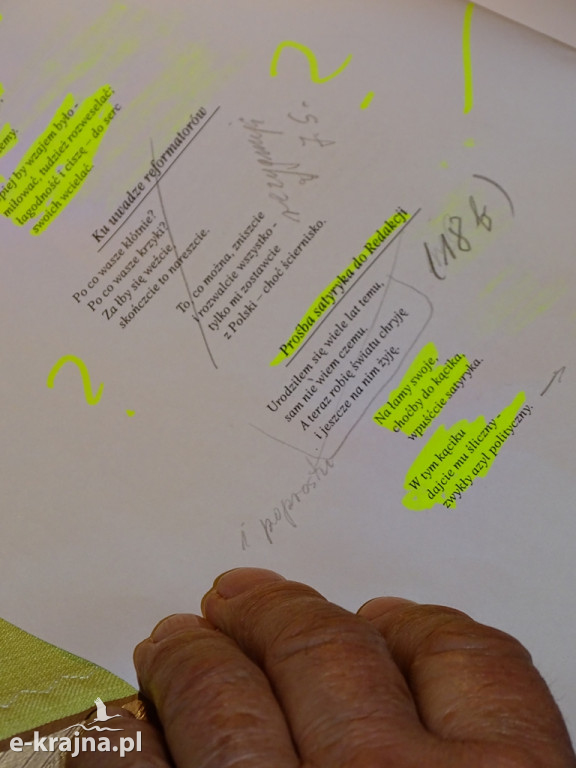 piej by wzajem było -
miłować, tudzież rozweselać;
łagodność i ciszę – do serc
swoich wcielać.
Ku uwadze reformatorów
Po co wasze kłótnie?
Po co wasze krzyki?
Za łby się weźcie,
skończcie to nareszcie.
To, co można, zniszcie
i rozwalcie wszystko -
tylko mi zostawcie
z Polski – choć ściernisko.
Prośba satyryka do Redakcji
(18 b)
Urodziłem się wiele lat temu,
sam nie wiem czemu.
A teraz robię światu chryję
i jeszcze na nim żyję.
i poprostu
Na łamy swoje,
choćby do kącika,
wpuśćcie satyryka.
W tym kąciku
dajcie mu śliczny -
zwykły azyl polityczny.
e-krajna.pl